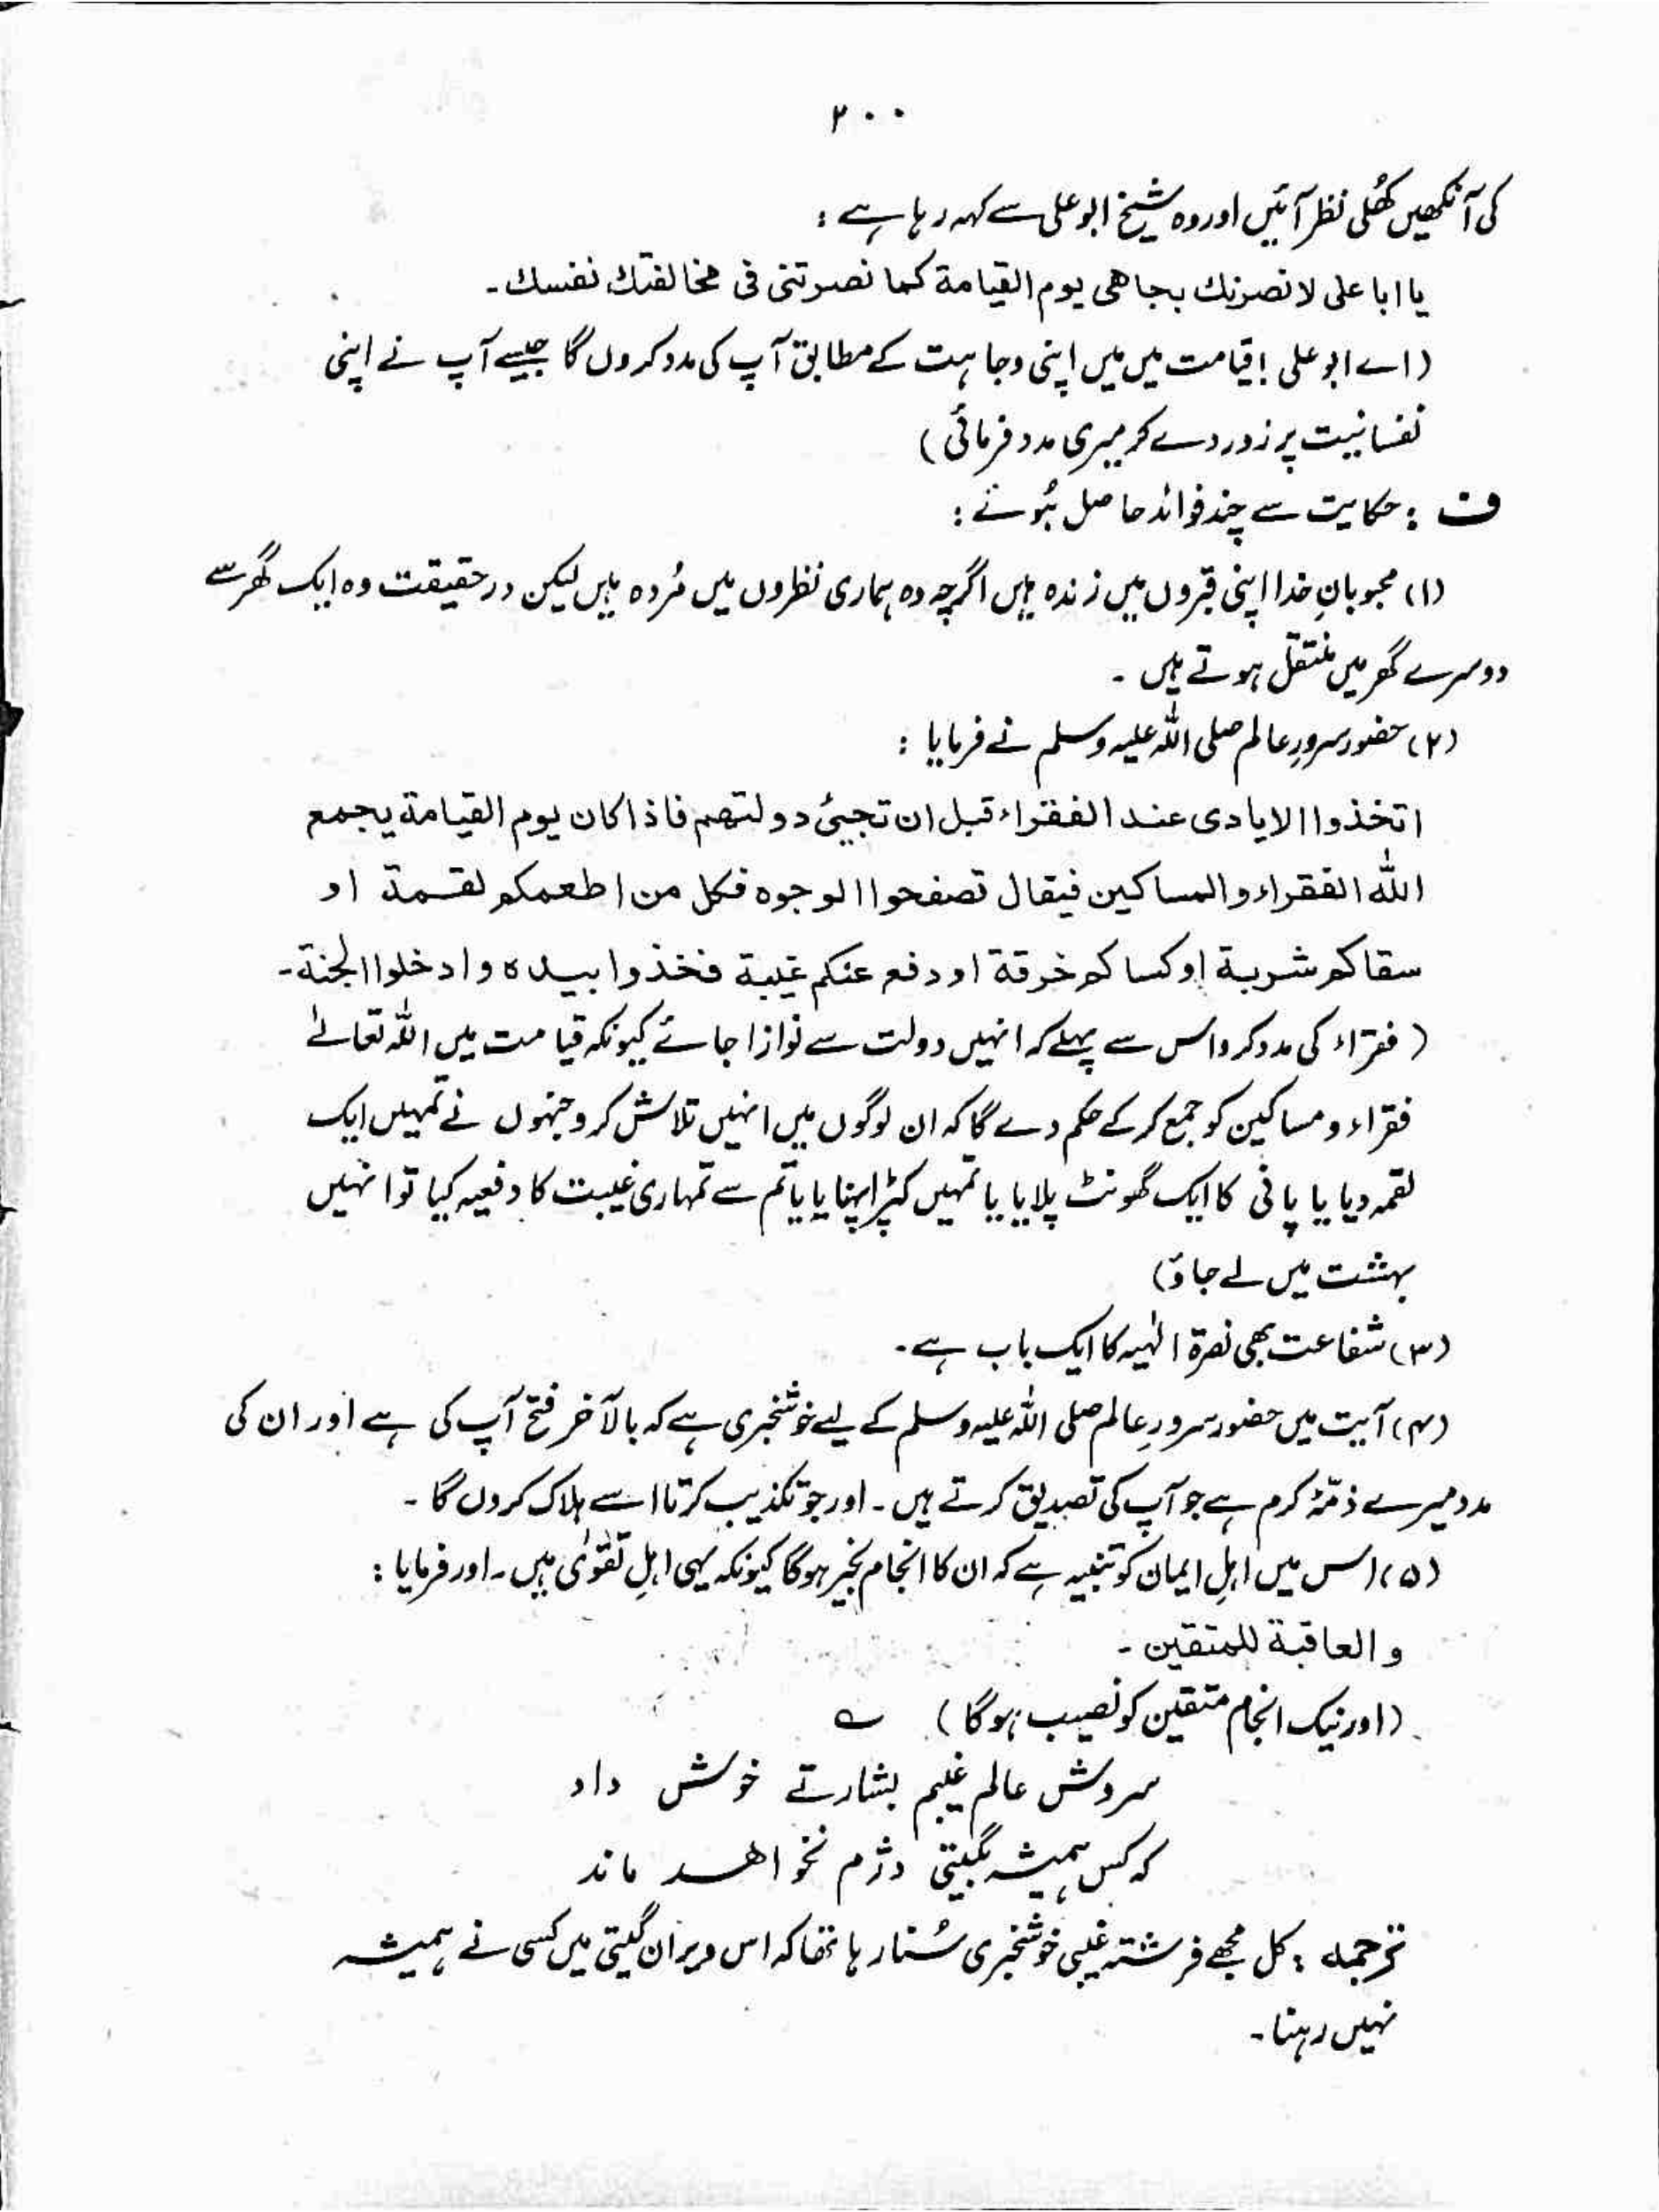 ۲۰۰
کی آنکھیں کھُلی نظر آئیں اور وہ شیخ ابو علی سے کہہ رہا ہے :
یا ابا علی لا نصرنك بجاهی یوم القیامة کما نصرتنی فی مخالفتك نفسك۔
(اے ابو علی! قیامت میں میں اپنی وجاہت کے مطابق آپ کی مدد کروں گا جیسے آپ نے اپنی
نفسانیت پر زور دے کر میری مدد فرمائی)
ف : حکایت سے چند فوائد حاصل ہُوئے :
(۱) محبوبانِ خدا اپنی قبروں میں زندہ ہیں اگرچہ وہ ہماری نظروں میں مُردہ ہیں لیکن درحقیقت وہ ایک گھر سے
دوسرے گھر میں منتقل ہوتے ہیں ۔
(۲) حضور سرورِ عالم صلی اللہ علیہ وسلم نے فرمایا :
اتخذوا الایادی عند الفقراء قبل ان تجیئ دولتهم فاذا کان یوم القیامة یجمع
الله الفقراء والمساکین فیقال تصفحوا الوجوه فکل من اطعمکم لقمة او
سقاکم شربة او کساکم خرقة او دفع عنکم غیبة فخذوا بیده وادخلوا الجنة۔
(فقراء کی مدد کرو اس سے پہلے کہ انہیں دولت سے نوازا جائے کیونکہ قیامت میں اللہ تعالےٰ
فقراء و مساکین کو جمع کر کے حکم دے گا کہ ان لوگوں میں انہیں تلاش کرو جنہوں نے تمہیں ایک
لقمہ دیا یا پانی کا ایک گھونٹ پلایا یا تمہیں کپڑا پہنایا یا تم سے تمہاری غیبت کا دفعیہ کیا تو انہیں
بہشت میں لے جاؤ)
(۳) شفاعت بھی نصرۃ الٰہیہ کا ایک باب ہے۔
(۴) آیت میں حضور سرورِ عالم صلی اللہ علیہ وسلم کے لیے خوشخبری ہے کہ بالآخر فتح آپ کی ہے اور ان کی
مدد میرے ذمّۂ کرم ہے جو آپ کی تصدیق کرتے ہیں ۔ اور جو تکذیب کرتا اسے ہلاک کردوں گا ۔
(۵) اس میں اہلِ ایمان کو تنبیہ ہے کہ ان کا انجام بخیر ہوگا کیونکہ یہی اہلِ تقوٰی ہیں ۔ اور فرمایا :
والعاقبة للمتقین ۔
(اور نیک انجام متقین کو نصیب ہوگا) ؎
سروش عالم غیبم بشارتے خوش داد
کہ کس ہمیشہ بگیتی دژم نخواہد ماند
ترجمہ : کل مجھے فرشتہ غیبی خوشخبری سُنا رہا تھا کہ اس ویران گیتی میں کسی نے ہمیشہ
نہیں رہنا ۔